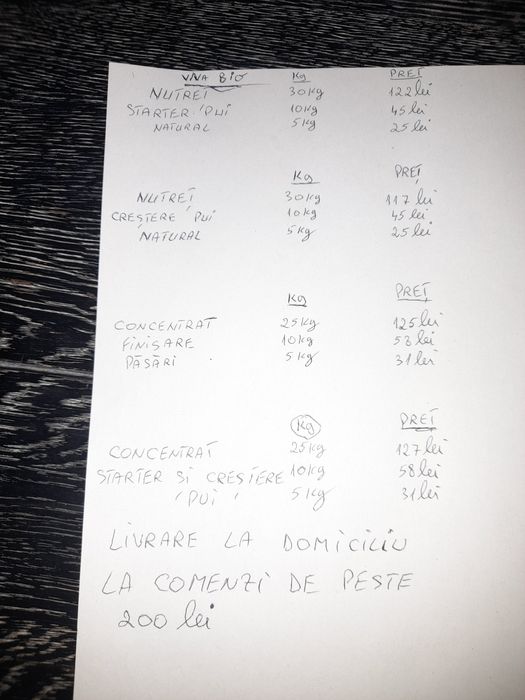 VIVA BIO Kg PREȚ
NUTREȚ 30Kg 122 lei
STARTER PUI 10Kg 45 lei
NATURAL 5Kg 25 lei
Kg PREȚ
NUTREȚ 30Kg 117 lei
CREȘTERE PUI 10Kg 45 lei
NATURAL 5Kg 25 lei
Kg PREȚ
CONCENTRAT 25Kg 125 lei
FINIȘARE 10Kg 58 lei
PĂSĂRI 5Kg 31 lei
Kg PREȚ
CONCENTRAT 25Kg 127 lei
STARTER SI CREȘTERE 10Kg 58 lei
PUI 5Kg 31 lei
LIVRARE LA DOMICILIU
LA COMENZI DE PESTE
200 lei